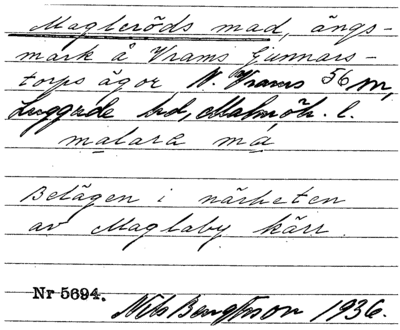 Magleröds mad, ängs-
mark å Vrams Gunnars-
torps ägor N. Vrams sn,
Luggude hd, Malmöh. l.
malara má
Belägen i närheten
av Maglaby kärr.
Nr 5694. Nils Bengtsson 1936.